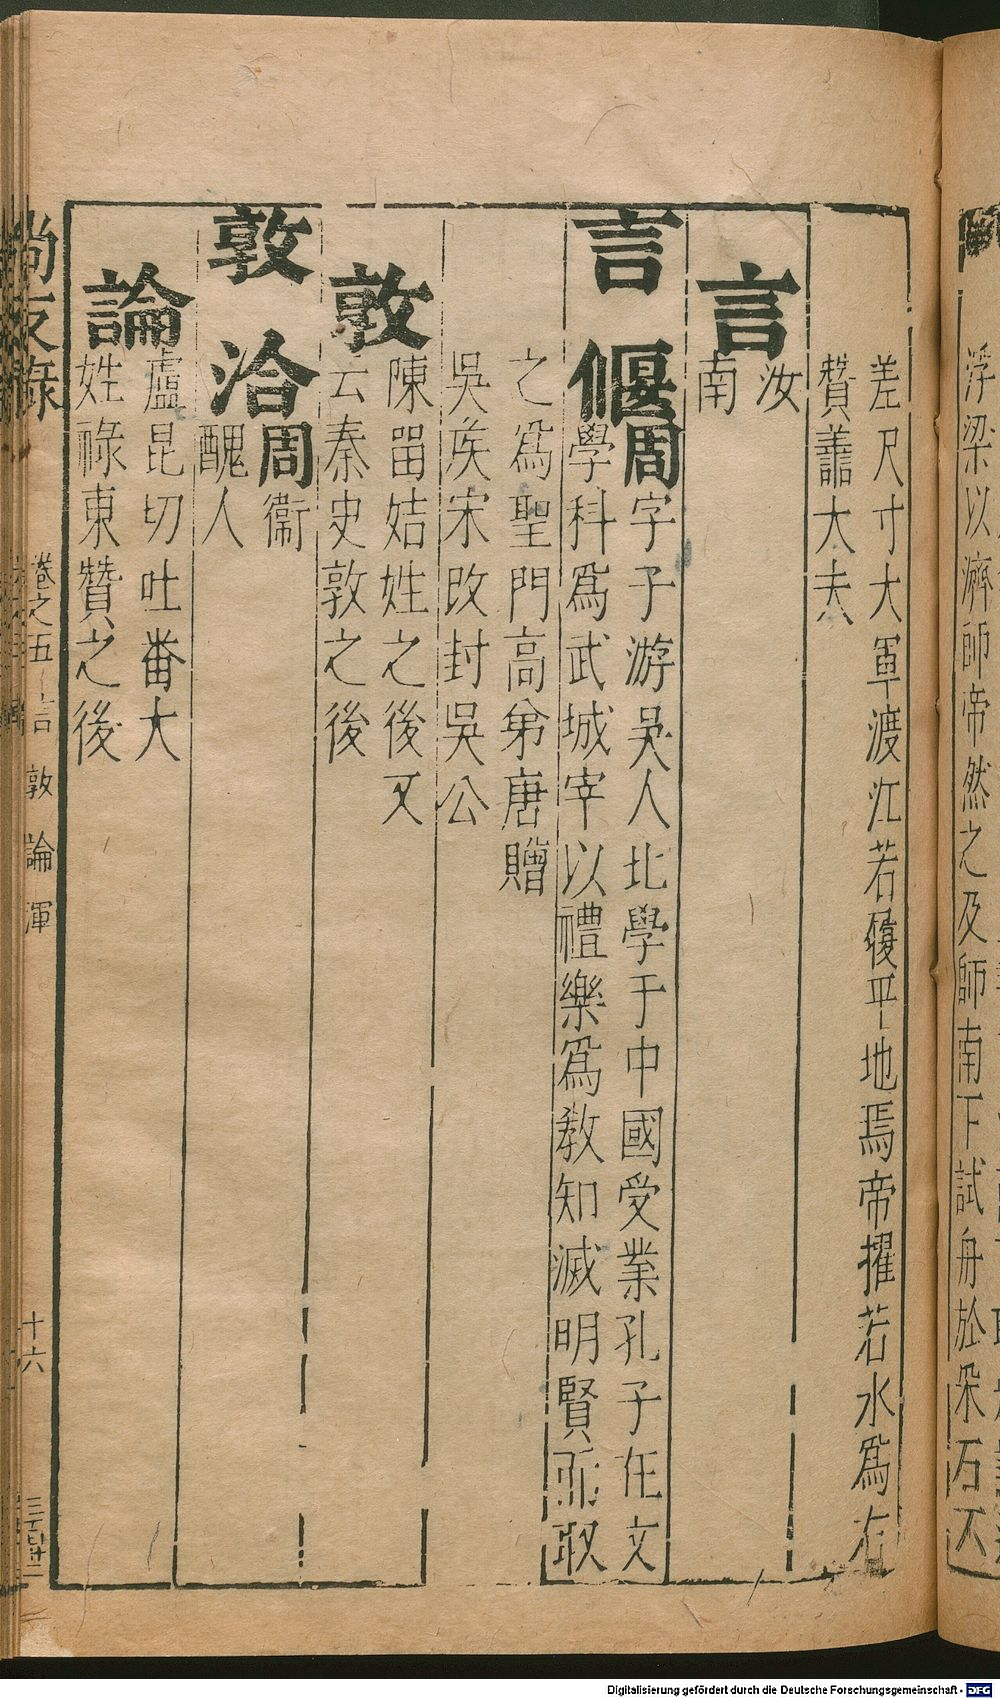 浮梁以濟師帝然之及師南下試舟於采石不
差尺寸大軍渡江若履平地焉帝擢若水爲右
贊善大夫
言
汝
南
言偃
周字子游吳人北學于中國受業孔子在文
學科爲武城宰以禮樂爲教知滅明賢而取
之爲聖門高弟唐贈
吳矦宋改封吳公
敦
陳畱姞姓之後又
云秦史敦之後
敦洽
周衞
醜人
論
盧昆切吐番大
姓祿東贊之後
尚友錄
卷之五 言 敦 論 渾
十六
Digitalisierung gefördert durch die Deutsche Forschungsgemeinschaft - DFG